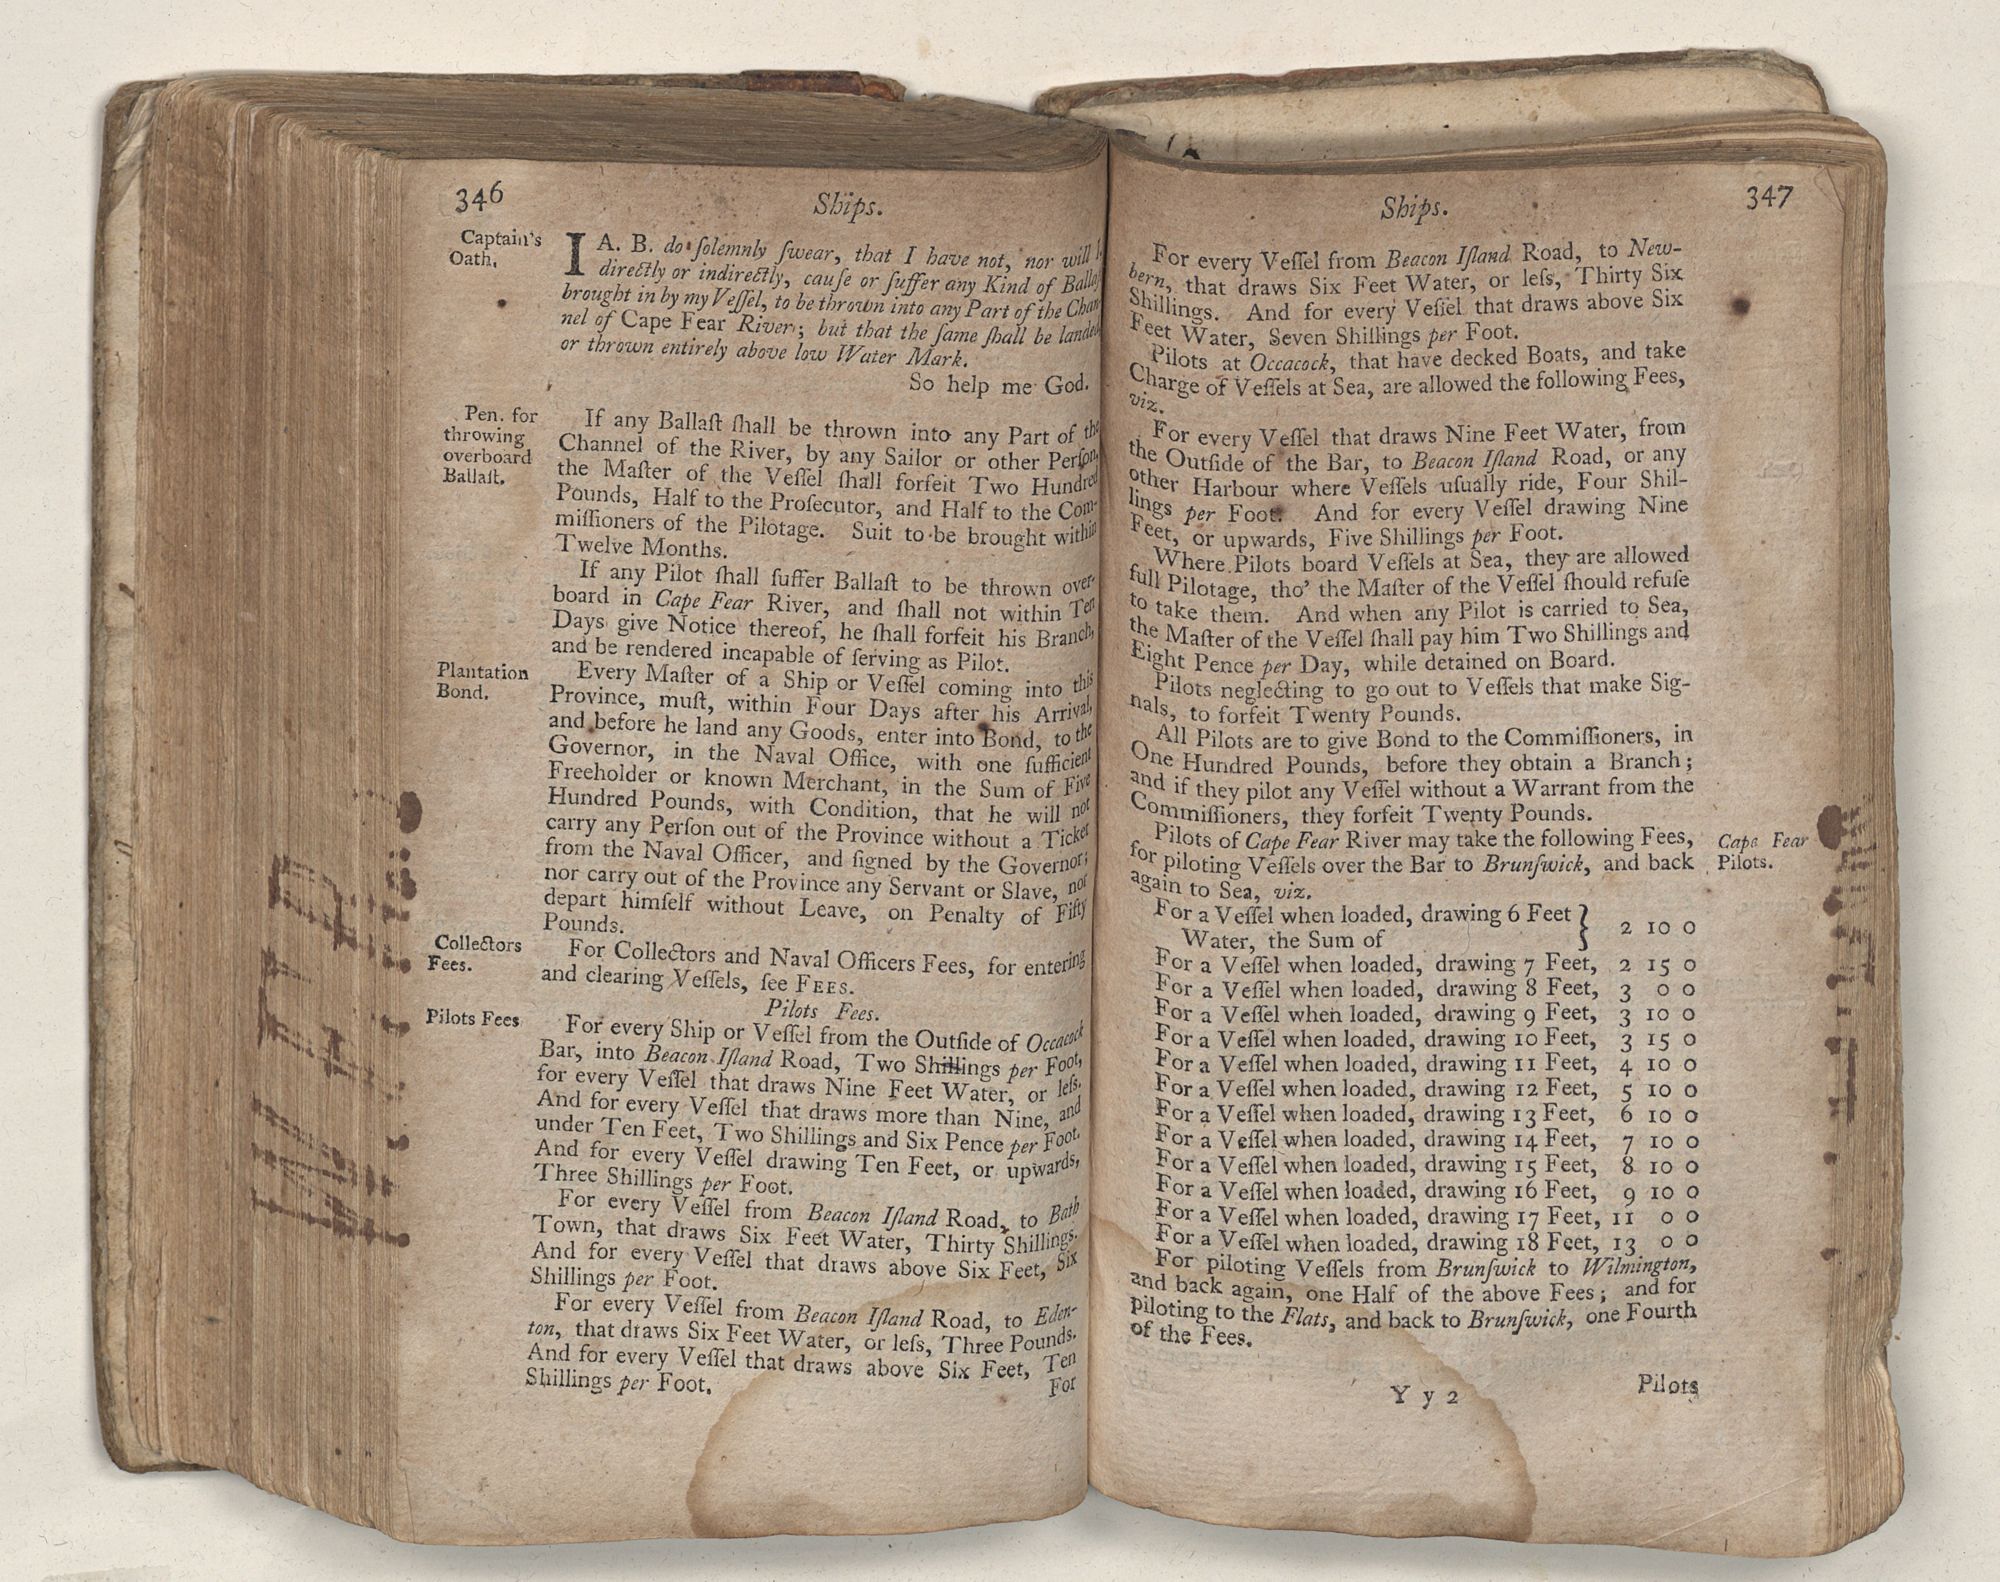 346
Ships.
Captain's
Oath.
I A. B. do ſolemnly ſwear, that I have not, nor will I
directly or indirectly, cauſe or ſuffer any Kind of Ballaſ
brought in by my Veſſel, to be thrown into any Part of the Chan
nel of Cape Fear River; but that the ſame ſhall be landed
or thrown entirely above low Water Mark.
So help me God.
Pen. for
throwing
overboard
Ballaſt.
If any Ballaſt ſhall be thrown into any Part of the
Channel of the River, by any Sailor or other Perſon,
the Maſter of the Veſſel ſhall forfeit Two Hundred
Pounds, Half to the Proſecutor, and Half to the Com-
miſſioners of the Pilotage. Suit to be brought within
Twelve Months.
If any Pilot ſhall ſuffer Ballaſt to be thrown over-
board in Cape Fear River, and ſhall not within Ten
Days give Notice thereof, he ſhall forfeit his Branch,
and be rendered incapable of ſerving as Pilot.
Plantation
Bond.
Every Maſter of a Ship or Veſſel coming into this
Province, muſt, within Four Days after his Arrival,
and before he land any Goods, enter into Bond, to the
Governor, in the Naval Office, with one ſufficient
Freeholder or known Merchant, in the Sum of Five
Hundred Pounds, with Condition, that he will not
carry any Perſon out of the Province without a Ticket
from the Naval Officer, and ſigned by the Governor;
nor carry out of the Province any Servant or Slave, nor
depart himſelf without Leave, on Penalty of Fifty
Pounds.
Collectors
Fees.
For Collectors and Naval Officers Fees, for entering
and clearing Veſſels, ſee FEES.
Pilots Fees.
Pilots Fees
For every Ship or Veſſel from the Outſide of Occacock
Bar, into Beacon Iſland Road, Two Shillings per Foot,
for every Veſſel that draws Nine Feet Water, or leſs.
And for every Veſſel that draws more than Nine, and
under Ten Feet, Two Shillings and Six Pence per Foot.
And for every Veſſel drawing Ten Feet, or upwards,
Three Shillings per Foot.
For every Veſſel from Beacon Iſland Road, to Bath
Town, that draws Six Feet Water, Thirty Shillings.
And for every Veſſel that draws above Six Feet, Six
Shillings per Foot.
For every Veſſel from Beacon Iſland Road, to Eden-
ton, that draws Six Feet Water, or leſs, Three Pounds.
And for every Veſſel that draws above Six Feet, Ten
Shillings per Foot.
For
Ships.
347
For every Veſſel from Beacon Iſland Road, to New-
bern, that draws Six Feet Water, or leſs, Thirty Six
Shillings. And for every Veſſel that draws above Six
Feet Water, Seven Shillings per Foot.
Pilots at Occacock, that have decked Boats, and take
Charge of Veſſels at Sea, are allowed the following Fees,
viz.
For every Veſſel that draws Nine Feet Water, from
the Outſide of the Bar, to Beacon Iſland Road, or any
other Harbour where Veſſels uſually ride, Four Shil-
lings per Foot. And for every Veſſel drawing Nine
Feet, or upwards, Five Shillings per Foot.
Where Pilots board Veſſels at Sea, they are allowed
full Pilotage, tho' the Maſter of the Veſſel ſhould refuſe
to take them. And when any Pilot is carried to Sea,
the Maſter of the Veſſel ſhall pay him Two Shillings and
Eight Pence per Day, while detained on Board.
Pilots neglecting to go out to Veſſels that make Sig-
nals, to forfeit Twenty Pounds.
All Pilots are to give Bond to the Commiſſioners, in
One Hundred Pounds, before they obtain a Branch;
and if they pilot any Veſſel without a Warrant from the
Commiſſioners, they forfeit Twenty Pounds.
Pilots of Cape Fear River may take the following Fees,
for piloting Veſſels over the Bar to Brunſwick, and back
again to Sea, viz.
Cape Fear
Pilots.
For a Veſſel when loaded, drawing 6 Feet
Water, the Sum of } 2 10 0
For a Veſſel when loaded, drawing 7 Feet, 2 15 0
For a Veſſel when loaded, drawing 8 Feet, 3 0 0
For a Veſſel when loaded, drawing 9 Feet, 3 10 0
For a Veſſel when loaded, drawing 10 Feet, 3 15 0
For a Veſſel when loaded, drawing 11 Feet, 4 10 0
For a Veſſel when loaded, drawing 12 Feet, 5 10 0
For a Veſſel when loaded, drawing 13 Feet, 6 10 0
For a Veſſel when loaded, drawing 14 Feet, 7 10 0
For a Veſſel when loaded, drawing 15 Feet, 8 10 0
For a Veſſel when loaded, drawing 16 Feet, 9 10 0
For a Veſſel when loaded, drawing 17 Feet, 11 0 0
For a Veſſel when loaded, drawing 18 Feet, 13 0 0
For piloting Veſſels from Brunſwick to Wilmington,
and back again, one Half of the above Fees; and for
piloting to the Flats, and back to Brunſwick, one Fourth
of the Fees.
Y y 2
Pilots